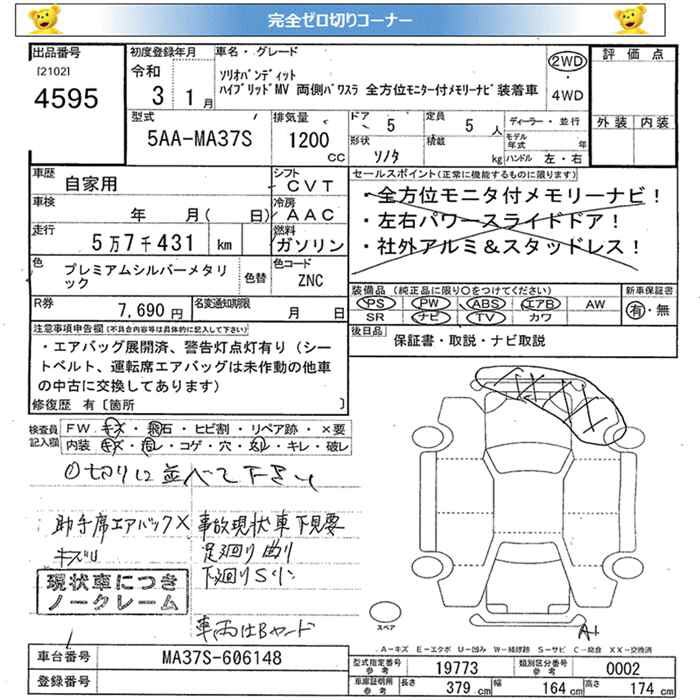 完全ゼロ切りコーナー
出品番号 初度登録年月 車名・グレード 評価点
[2102] 令和 ソリオバンディット 2WD
4595 3 1月 ハイブリッドMV 両側パワスラ 全方位モニター付メモリーナビ装着車 4WD
型式 排気量 ドア 定員 ディーラー・並行 外装 内装
5AA-MA37S 1200 CC 5 5 人 モデル年式 年
形状 ソノタ 積載 kg ハンドル 左・右
車歴 シフト セールスポイント(正常に機能するものに限ります)
自家用 CVT ・全方位モニタ付メモリーナビ!
車検 冷房 ・左右パワースライドドア!
年 月( 日) AAC ・社外アルミ&スタッドレス!
走行 燃料
5万7千431 km ガソリン
色 色替 色コード 装備品(純正品に限り○をつけてください) 新車保証書
プレミアムシルバーメタリック ZNC PS PW ABS エアB AW 有・無
R券 名変通知期限 SR ナビ TV カワ
7,690円 月 日 後日品
注意事項申告欄(不具合内容等は具体的に記入して下さい) 保証書・取説・ナビ取説
・エアバッグ展開済、警告灯点灯有り(シー
トベルト、運転席エアバッグは未作動の他車
の中古に交換してあります)
修復歴 有〔箇所 〕
検査員 FW キズ・飛石・ヒビ割・リペア跡・×要
記入欄 内装 キズ・汚レ・コゲ・穴・スレ・キレ・破レ
切りに並べて下さい
助手席エアバック× 事故現状車下見要
キズU 足廻り曲り
下廻りSリン
現状車につき
ノークレーム
車両はBヤード
スペア
A1
A-キズ E-エクボ U-凹み W-補修跡 S-サビ C-腐食 XX-交換済
車台番号 MA37S-606148 型式指定番号 参考 19773 類別区分番号 参考 0002
登録番号 車庫証明用 参考 長さ 379 cm 幅 164 cm 高さ 174 cm